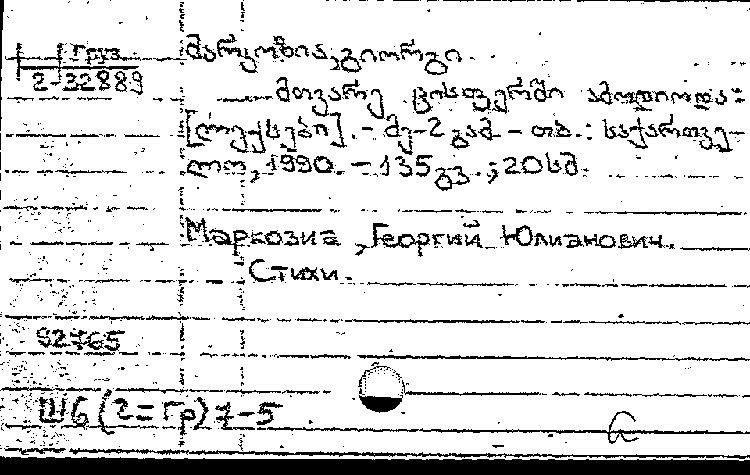 Груз.
2-32889
მარკოზია, გიორგი.
მთვარე ცისფერში ამოდიოდა:
[ლექსები]. - მე-2 გამ. - თბ.: საქართვე-
ლო, 1990. - 135 გვ.; 20 სმ.
Маркозиа, Георгий Юлианович.
Стихи.
92765
Ш6(2=Гр)7-5